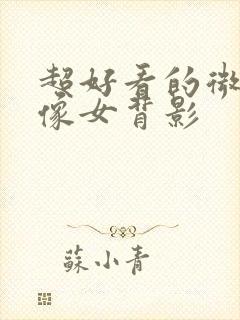 超好看的微
像女背影
蘇小青